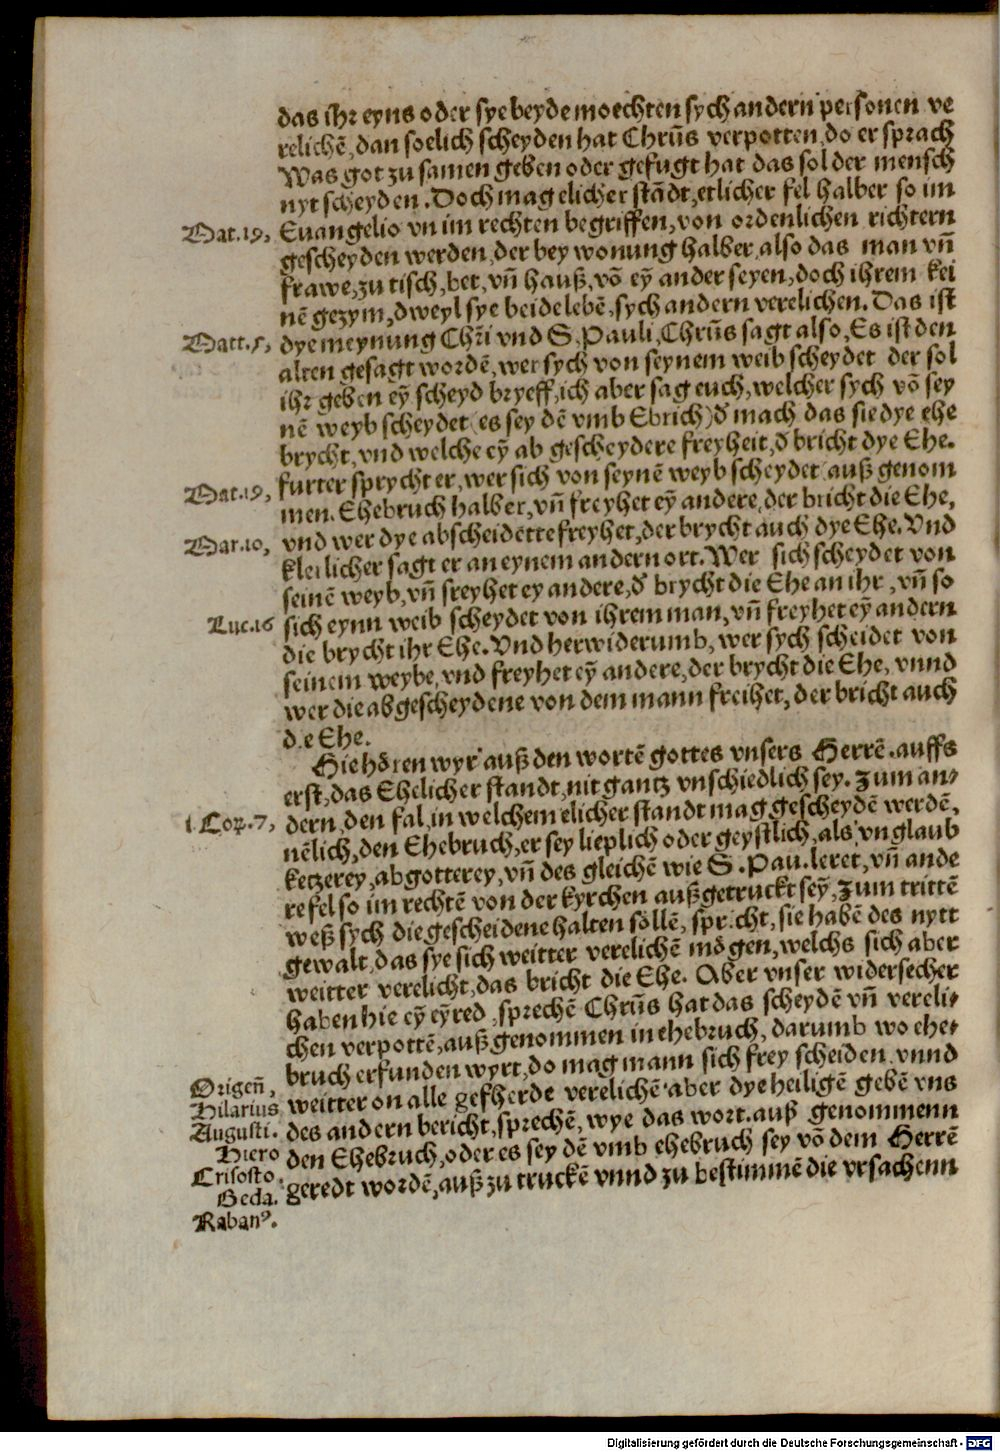 das ihr eyns oder sye beyde moechten sych andern personen ve
relichē, dan soelich scheyden hat Chrūs verpotten, do er sprach
Was got zu samen geben oder gefugt hat das sol der mensch
nyt scheyden. Doch mag elicher stādt, etlicher fel halber so im
Mat.19, Euangelio vn im rechten begriffen, von ordenlichen richtern
gescheyden werden, der bey wonung halber, also das man vn̄
frawe, zu tisch, bet, vn̄ hauß, vō eỹ ander seyen, doch ihrem kei
nē gezym, dweyl sye beide lebē, sych andern verelichen. Das ist
Matt.5, dye meynung Chr̄i vnd S. Pauli, Chrūs sagt also, Es ist den
alten gesagt wordē, wer sych von seynem weib scheydet der sol
ihr geben eỹ scheyd bryeff, ich aber sag euch, welcher sych vō sey
nē weyb scheydet (es sey dē vmb Ebrich) d̄ mach das sie dye ehe
brycht, vnd welche eỹ ab gescheydere freyheit, d̄ bricht dye Ehe.
Mat.19, furter sprycht er, wer sich von seynē weyb scheydet auß genom
men. Ehebruch halber, vn̄ freyhet eỹ andere, der bricht die Ehe,
Mar.10, vnd wer dye abscheidette freyhet, der brycht auch dye Ehe. Vnd
klerlicher sagt er an eynem andern ort. Wer sich scheydet von
seinē weyb, vn̄ freyhet ey andere, d̄ brycht die Ehe an ihr, vn̄ so
Luc.16 sich eynn weib scheydet von ihrem man, vn̄ freyhet eỹ andern
die brycht ihr Ehe. Vnd herwiderumb, wer sych scheidet von
seinem weybe, vnd freyhet eỹ andere, der brycht die Ehe, vnnd
wer die abgescheydene von dem mann freihet, der bricht auch
d.e Ehe.
Hie hören wyr auß den wortē gottes vnsers Herrē. auffs
erst, das Ehelicher standt, nit gantz vnschiedlich sey. Zum an-
1.Cor.7, dern, den fal, in welchem elicher standt mag gescheydē werdē,
nēlich, den Ehebruch, er sey lieplich oder geystlich, als vnglaub
ketzerey, abgotterey, vn̄ des gleichē wie S. Pau. leret, vn̄ ande
re fel so im rechtē von der kyrchen auß getruckt seỹ, Zum trittē
weß sych die gescheidene halten söllē, spr.cht, sie habē des nytt
gewalt, das sye sich weitter verelichē mögen, welchs sich aber
weitter verelicht, das bricht die Ehe. Aber vnser widersecher
haben hie eỹ eỹred, sprechē Chrūs hat das scheydē vn̄ vereli-
chen verpottē, auß genommen in ehebruch, darumb wo ehe-
bruch erfunden wyrt, do mag mann sich frey scheiden vnnd
Origen̄, weitter on alle gefherde verelichē aber dye heiligē gebē vns
Hilarius
Augusti. des andern bericht, sprechē, wye das wort. auß genommenn
Hiero den Ehebruch, oder es sey dē vmb ehebruch sey vō dem Herrē
Crisosto. geredt wordē, auß zu truckē vnnd zu bestimmē die vrsachenn
Beda.
Raban⁹.
Digitalisierung gefördert durch die Deutsche Forschungsgemeinschaft - DFG